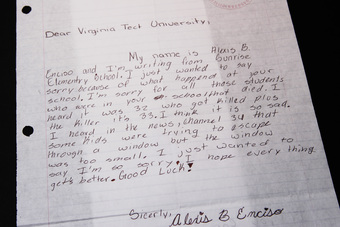 Dear Virginia Tect University,
My name is Alexis B.
Enciso and I'm writing from Sunrise
Elementry School. I just wanted to say
sorry because of what happened at your
school. I'm sorry for all those students
who were in your school that died. I
heard it was 32 who got killed plus
the killer it's 33. I think it is so sad.
I heard in the news, channel 34 that
some kids were trying to escape
through a window but the window
was too small. I just wanted to
say I'm so sorry. I hope every thing
gets better. Good Luck!
Sicerly, Alexis B Enciso